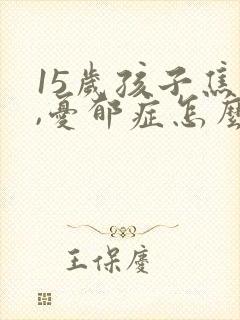 15歲孩子焦
,憂郁症怎麼
王保慶